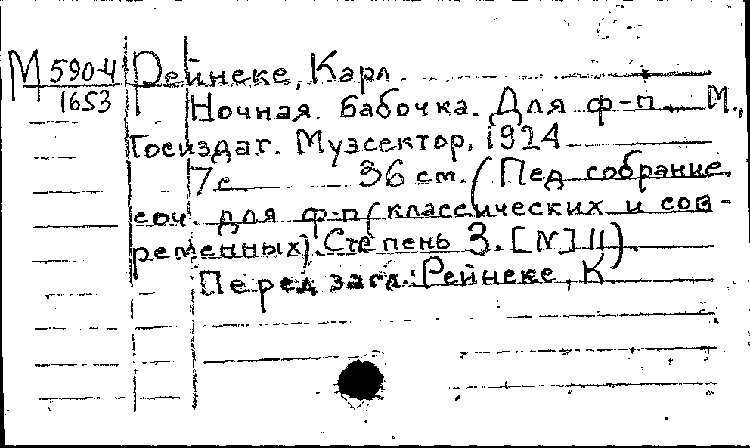 М 590-4 Рейнеке, Карл.
1653 Ночная бабочка. Для ф-п. М.,
Госиздат. Музсектор, 1924
7 с 36 см. (Пед собрание
соч. для ф-п (классических и сов-
ременных). Степень 3. [N] 11).
Перед загл.: Рейнеке, К